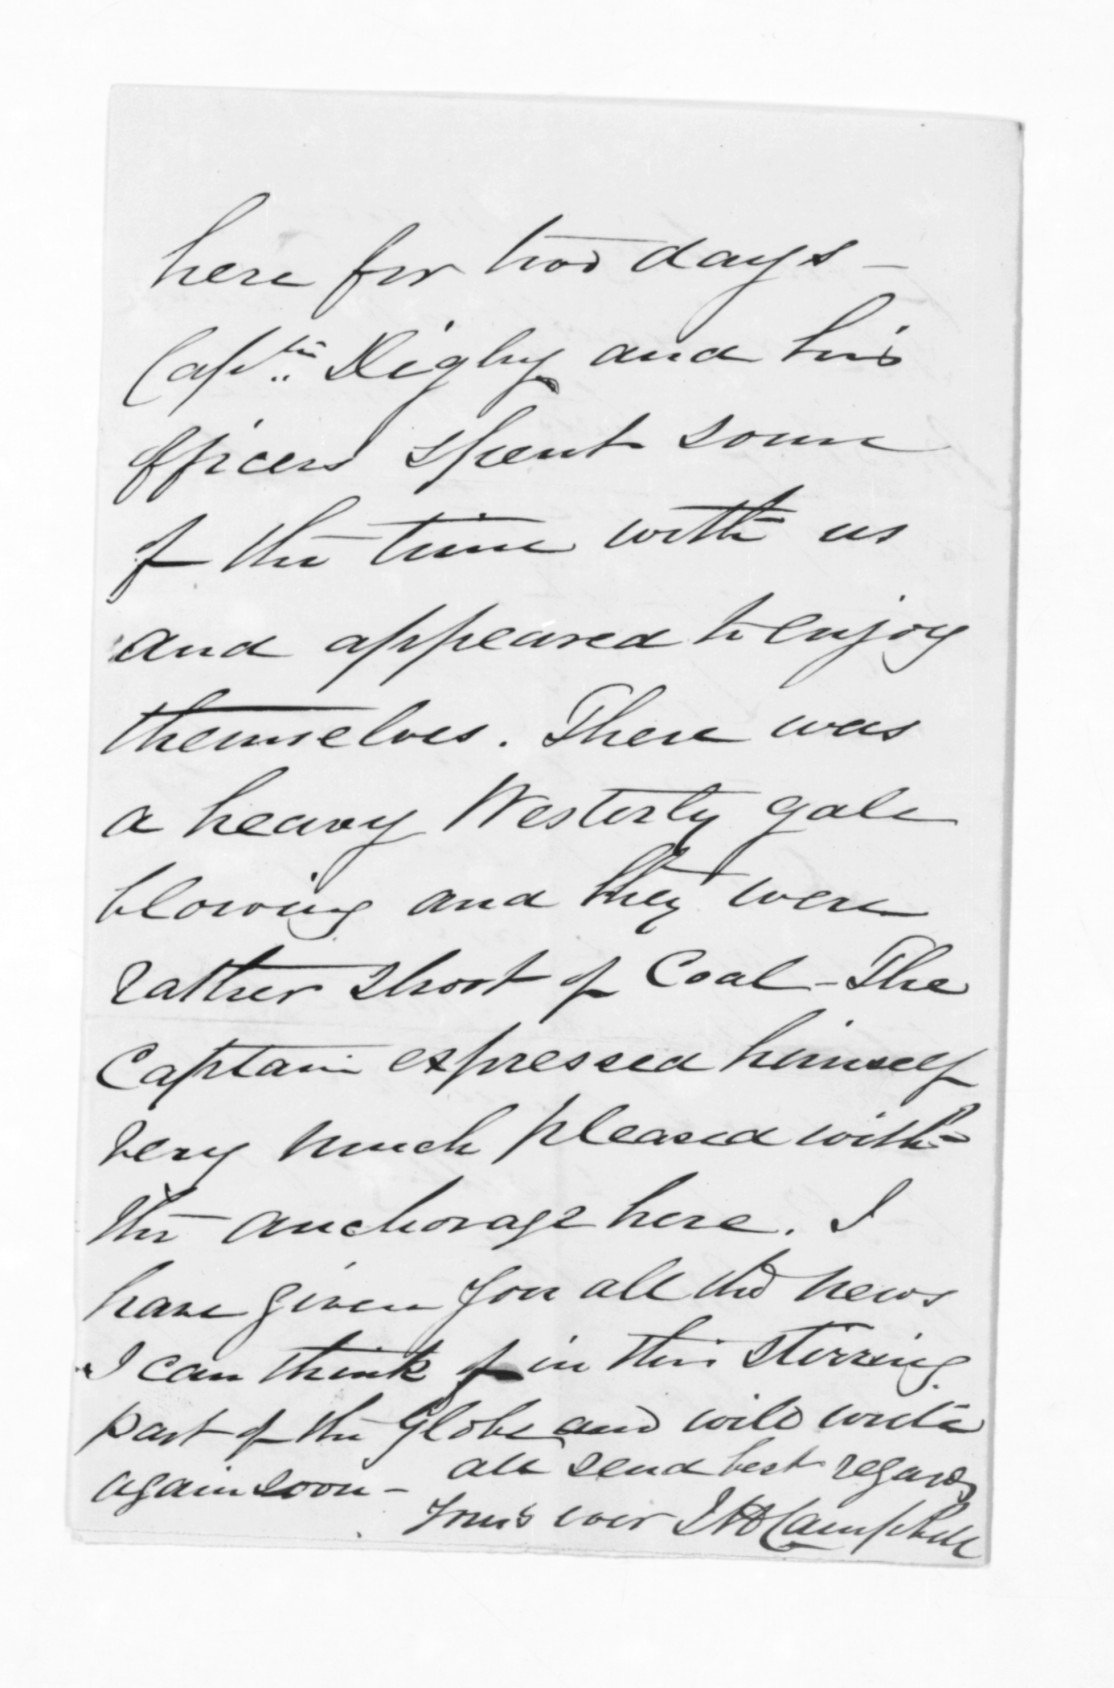 here for two days –
Captn. Digby and his
officers spent some
of the time with us
and appeared to enjoy
themselves. There was
a heavy Westerly gale
blowing and they were
rather short of Coal – The
Captain expressed himself
very much pleased with
the anchorage here. I
have given you all the news
I can think of in this stirring
part of the Globe and will write
again soon – all send best regards
Yours ever J H Campbell